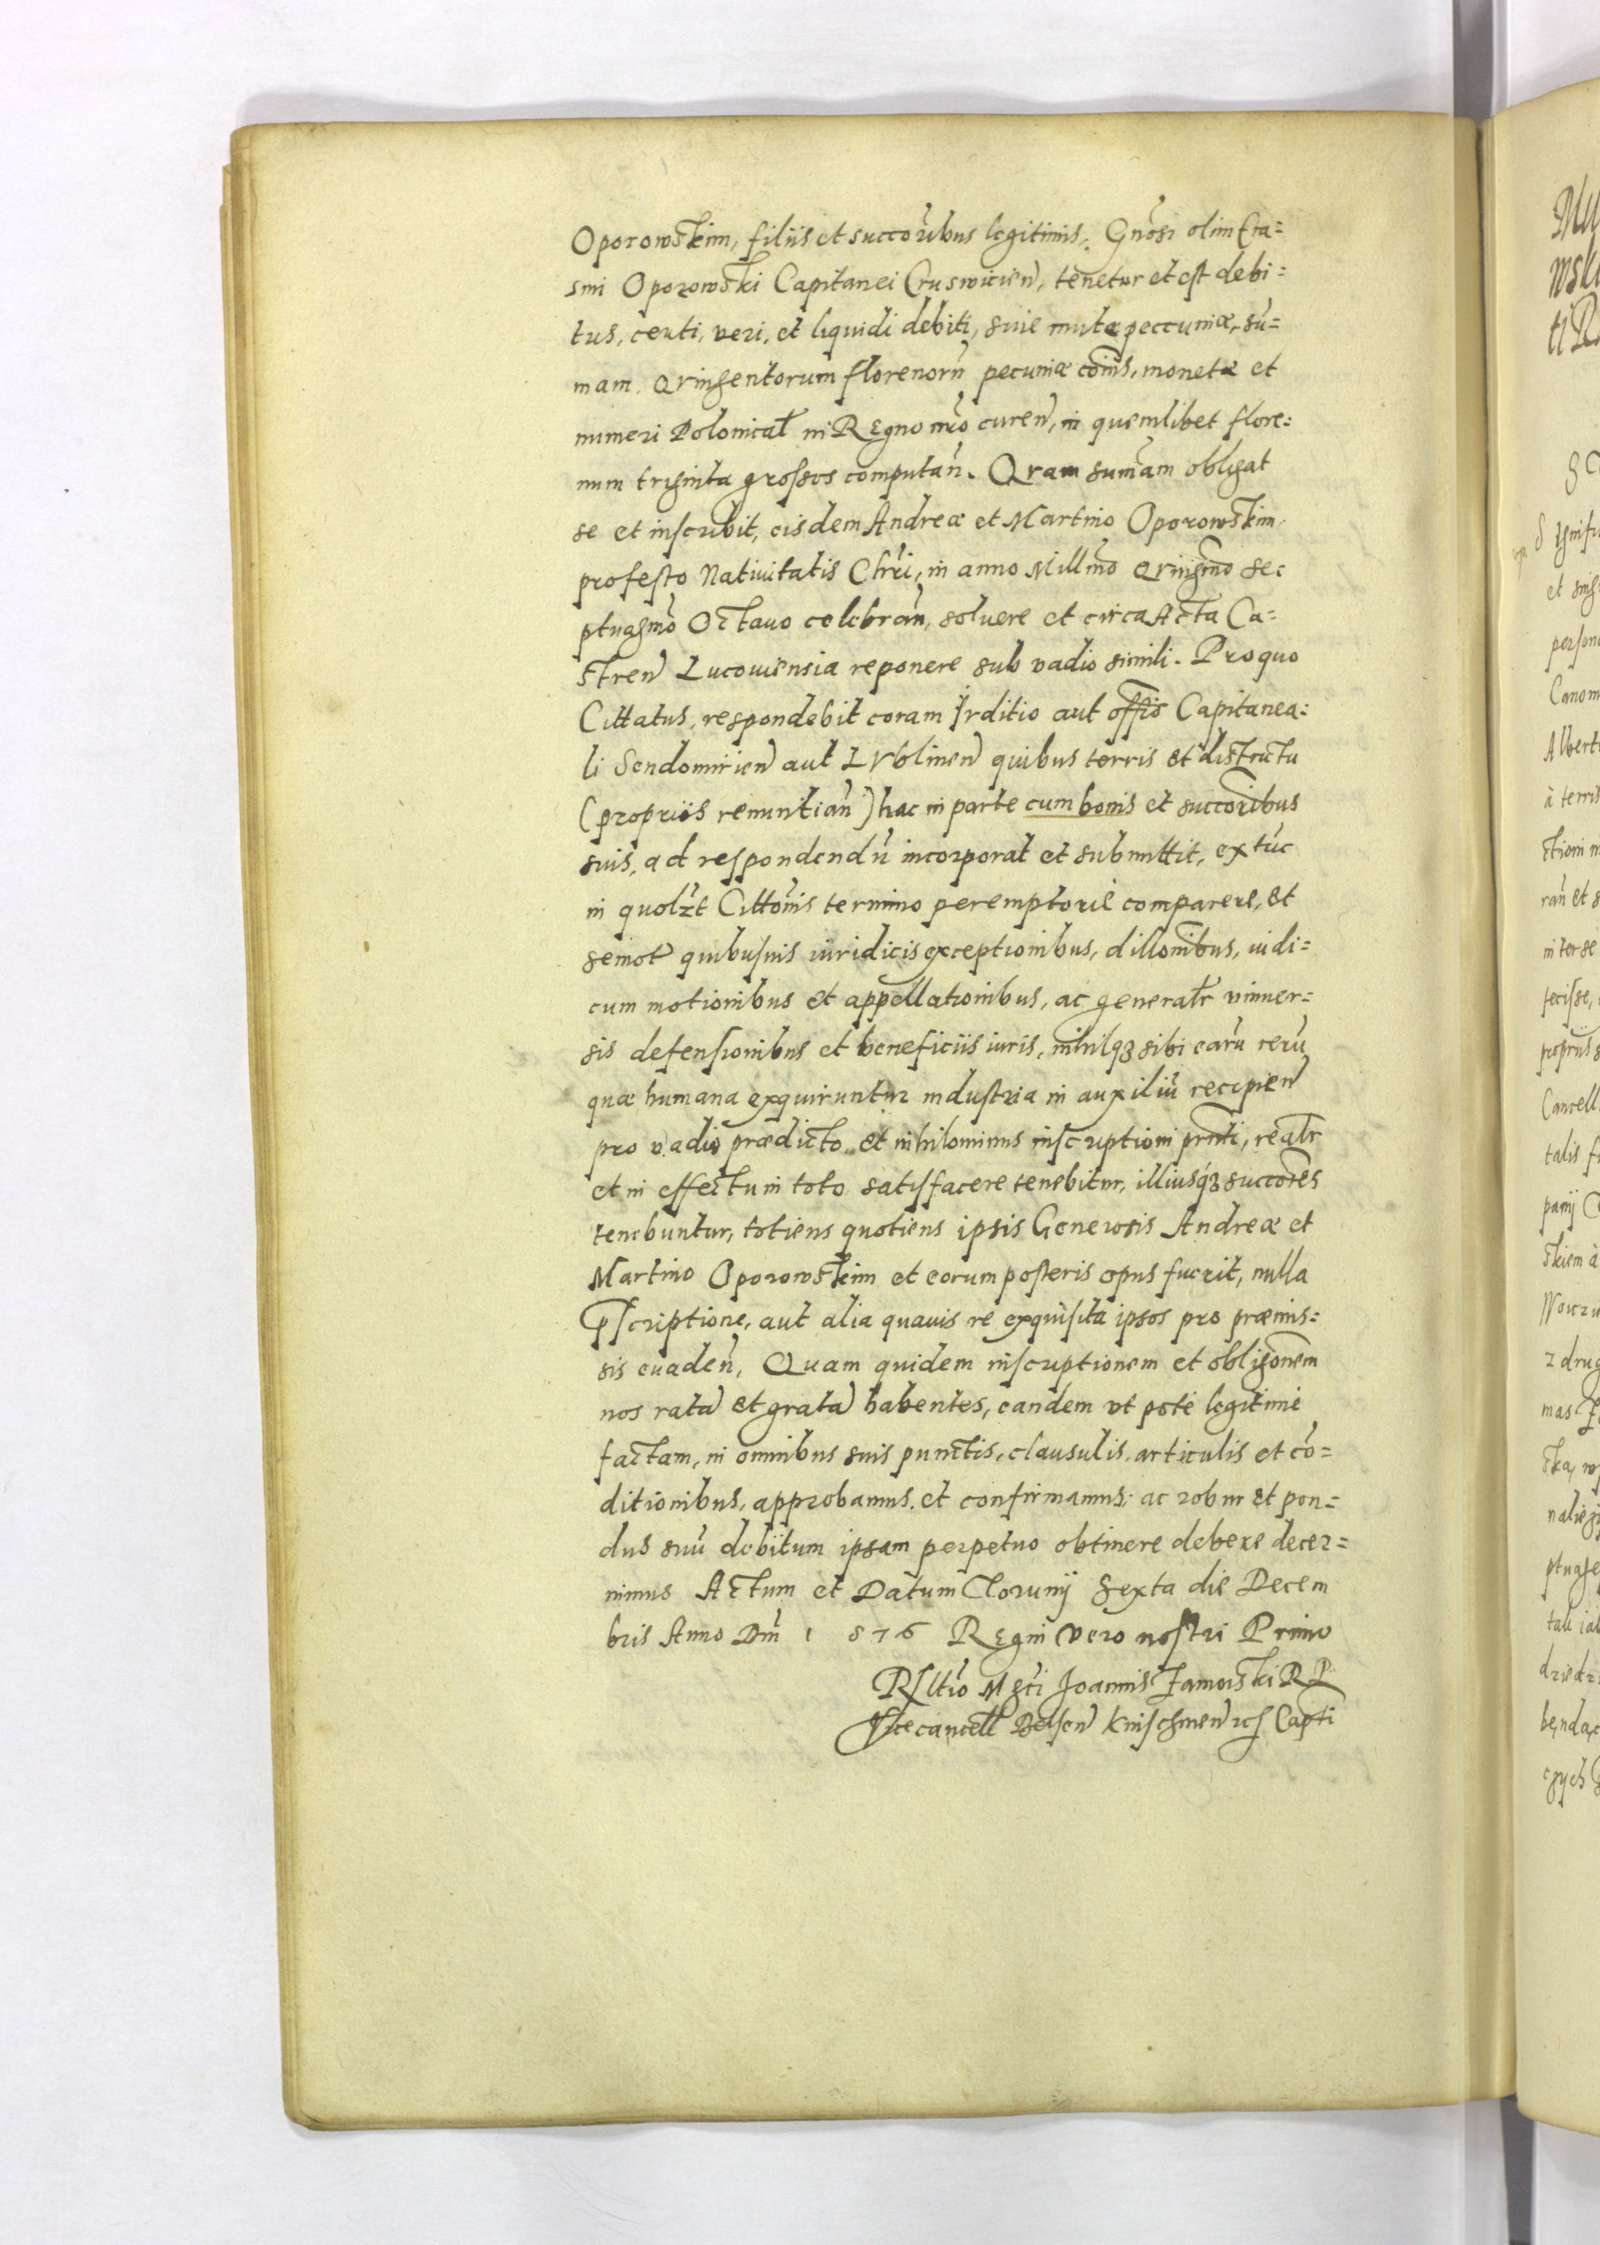 Oporowskim, filiis et succoribus legitimis, Gnosi olim Era=
smi Oporowski Capitanei Cruswicien, tenetur et est debi=
tus, certi, veri, et liquidi debiti, suae mutæ peccuniæ, sū=
mam Qringentorum florenorū pecuniæ cōmis, monetæ et
numeri Polonicał in Regno nrō curen, in quemlibet flore=
num triginta grossos computan̄. Qram sumam obligat
se et inscribit, eisdem Andreæ et Martino Oporowskim,
profesto Nativitatis Chri, in anno Millmō Qringmō se
ptuagmō Octavo celebran̄, soluere et circa Acta Ca=
stren Lucoviensia reponere sub vadio simili. Pro quo
Cittatus, respondebit coram Irditio aut offīo Capitanea=
li Sendomirien aut LVblinen quibus terris et districtu
(propriis renuntian̄) hac in parte cum bonis et succoribus
suis, ad respondendū incorporat et submittit, ex tūc
in quolzt Cittōnis termino peremptorie comparere, et
semot quibusvis iuridicis exceptionibus, dillonibus, iudi=
cum motionibus et appellationibus, ac generalr vniuer=
sis defensionibus et beneficiis iuris, nihilqz sibi earū rerū
quæ humana exquiruntur industria in auxiliū recipien
pro vadio prædicto et nihilominus inscriptioni prnti, realr
et in effectu in toto satisfacere tenebitur, illiusqz succores
tenebuntur, totiens quotiens ipsis Generosis Andreæ et
Martino Oporowskim et eorum posteris opus fuerit, nulla
pscriptione, aut alia quavis re exquisita ipsos pro præmis=
sis evaden̄, Quam quidem inscriptionem et obligonem
nos rata et grata habentes, eandem vt pote legitime
factam, in omnibus suis punctis, clausulis, articulis et cō=
ditionibus, approbamus et confirmamus, ac robur et pon=
dus suū debitum ipsam perpetuo obtinere debere decer=
nimus Actum et Datum Thorunij Sexta die Decem
bris Anno Dni 1 5 7 6 Regni vero nostri Primo
Rltio Mgci Joannis Zamoiski R P
Vicecancell Belsen Knischinen zcs Capti